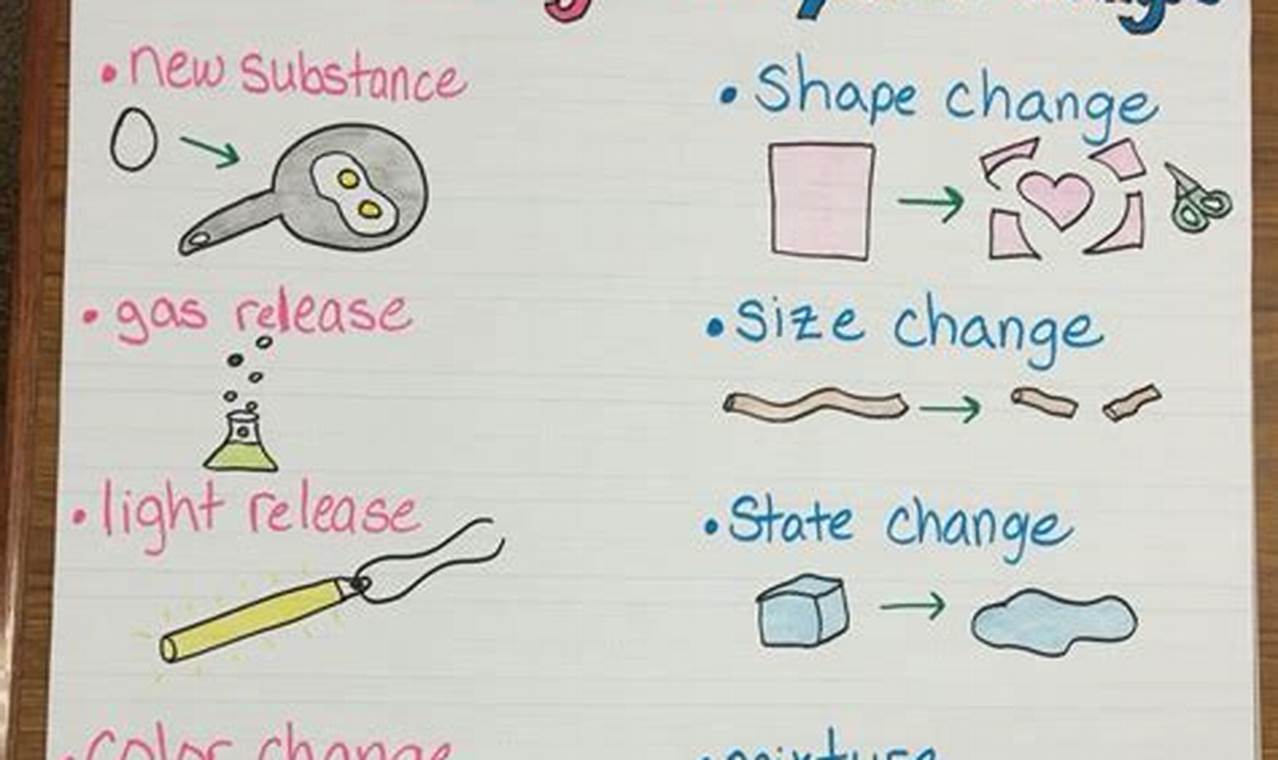 • new substance
• gas release
• light release
• color change
• Shape change
• Size change
• State change
• mixture